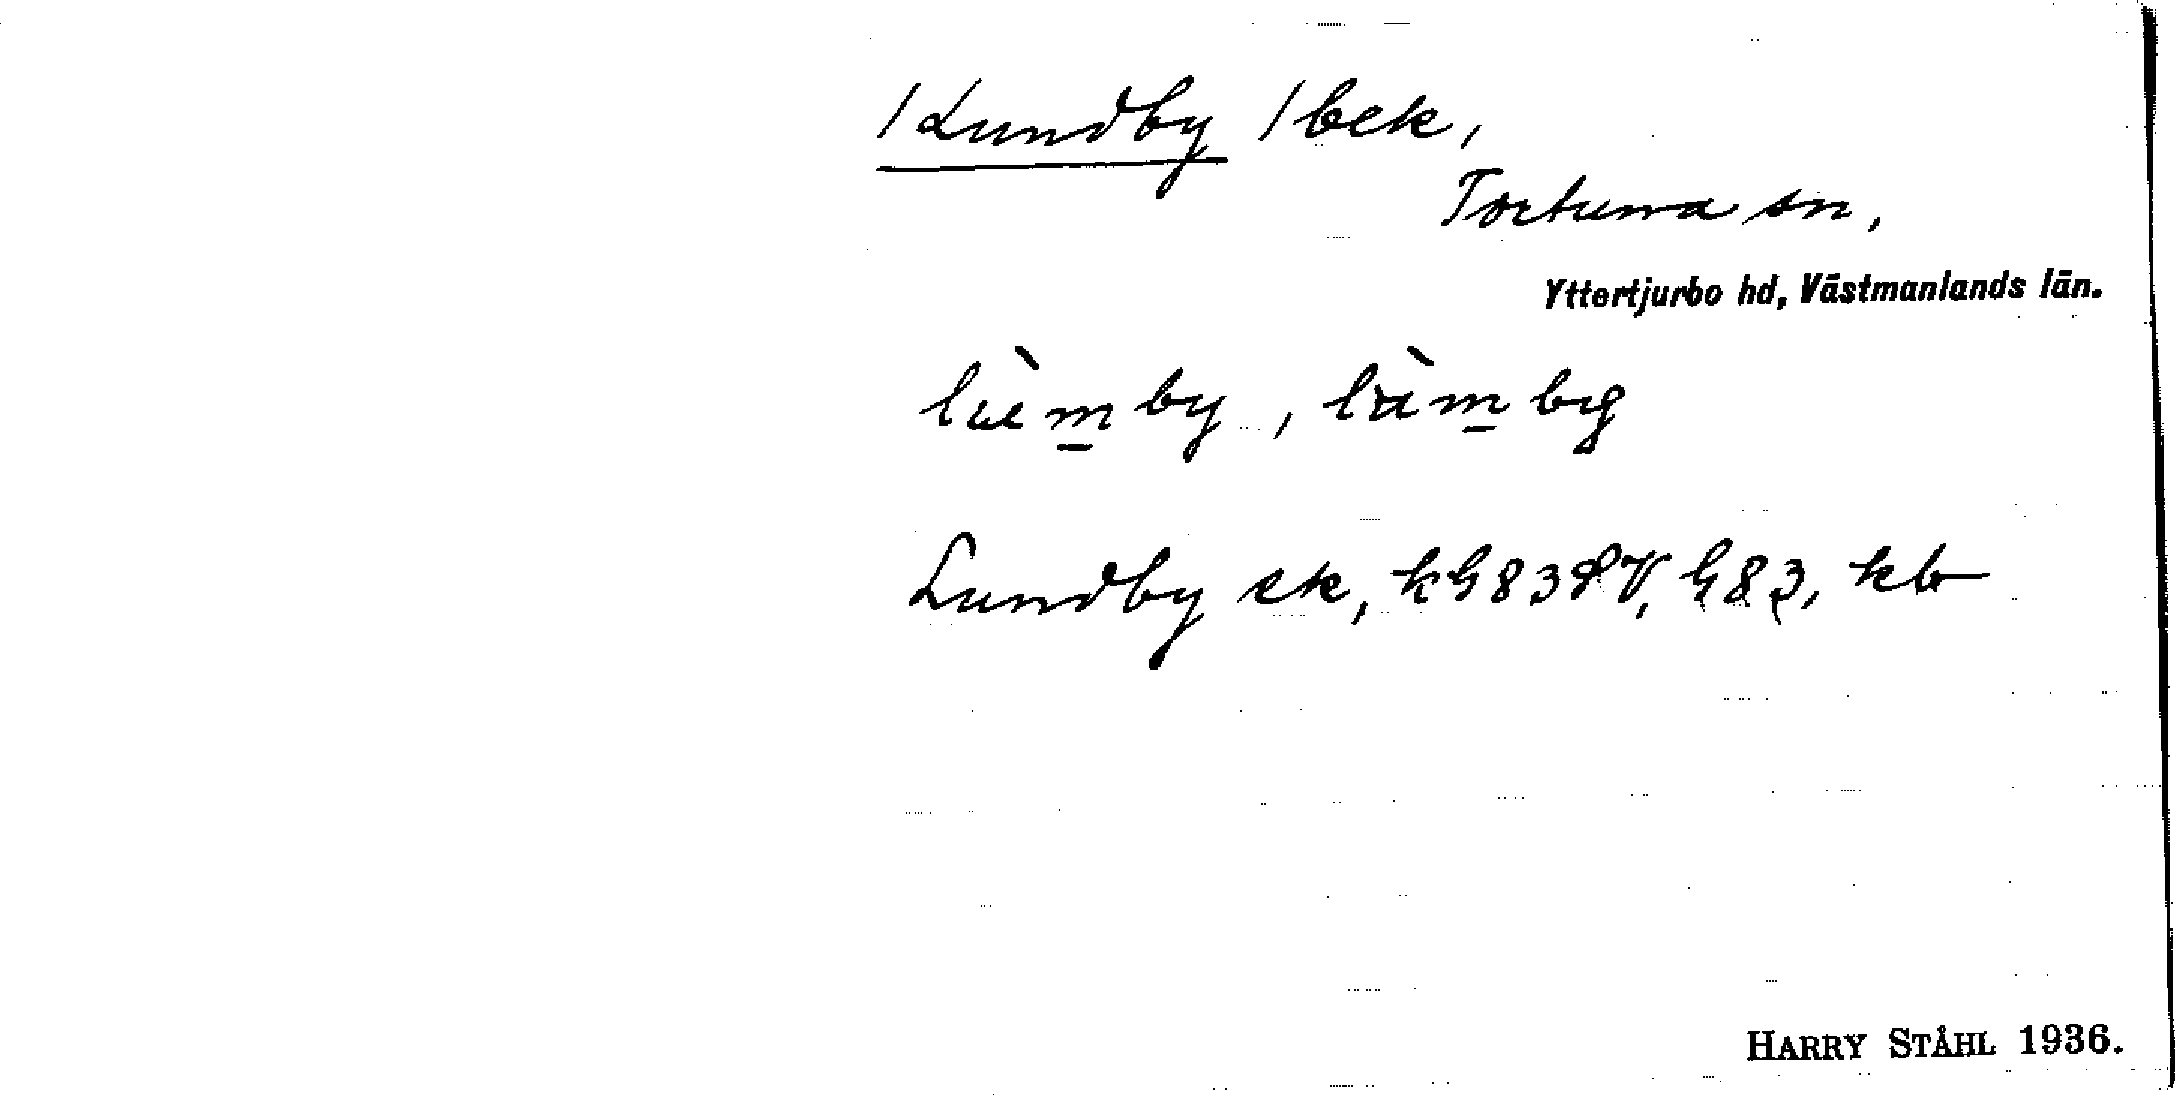 / Lundby / bek,
Tortuna sn,
Yttertjurbo hd, Västmanlands län.
lùmby, lùmby
Lundby ek,
HARRY STÅHL 1936.